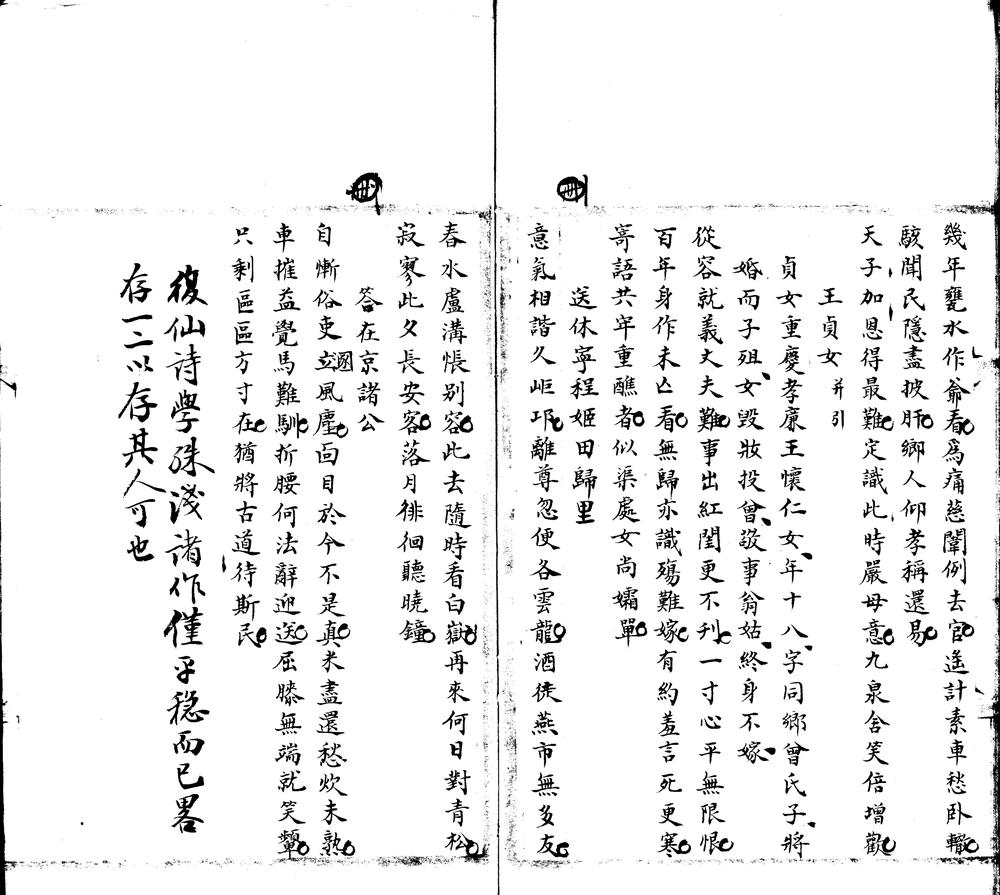 幾年甕水作爺看爲痛慈闈例去官遙計素車愁卧轍
駭聞民隱盡披肝鄉人仰孝稱還易
天子加恩得最難定識此時嚴母意九泉含笑倍增歡
王貞女并引
貞女重慶孝廉王懷仁女年十八字同鄉曾氏子將
婚而子殂女毀妝投曾敬事翁姑終身不嫁
從容就義丈夫難事出紅閨更不刋一寸心平無限恨
百年身作未亡看無歸亦識殤難嫁有約羞言死更寒
寄語共牢重醮者似渠處女尚孀單
送休寧程姬田歸里
意氣相諧久岠邛離尊忽便各雲龍酒徒燕市無多友
春水盧溝悵别容此去隨時看白嶽再來何日對青松
寂寥此夕長安客落月徘徊聽曉鐘
答在京諸公
自慚俗吏立國風塵面目於今不是真米盡還愁炊未熟
車摧益覺馬難馴折腰何法辭迎送屈膝無端就笑顰
只剩區區方寸在猶將古道待斯民
復仙詩學殊淺諸作僅平稳而已畧
存一二以存其人可也